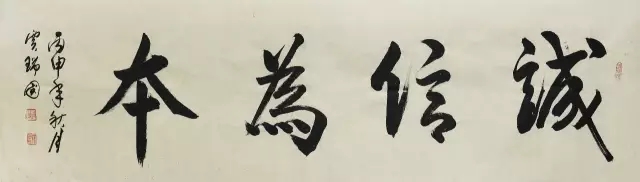 誠信為本
丙申年秋月
雲瑞園